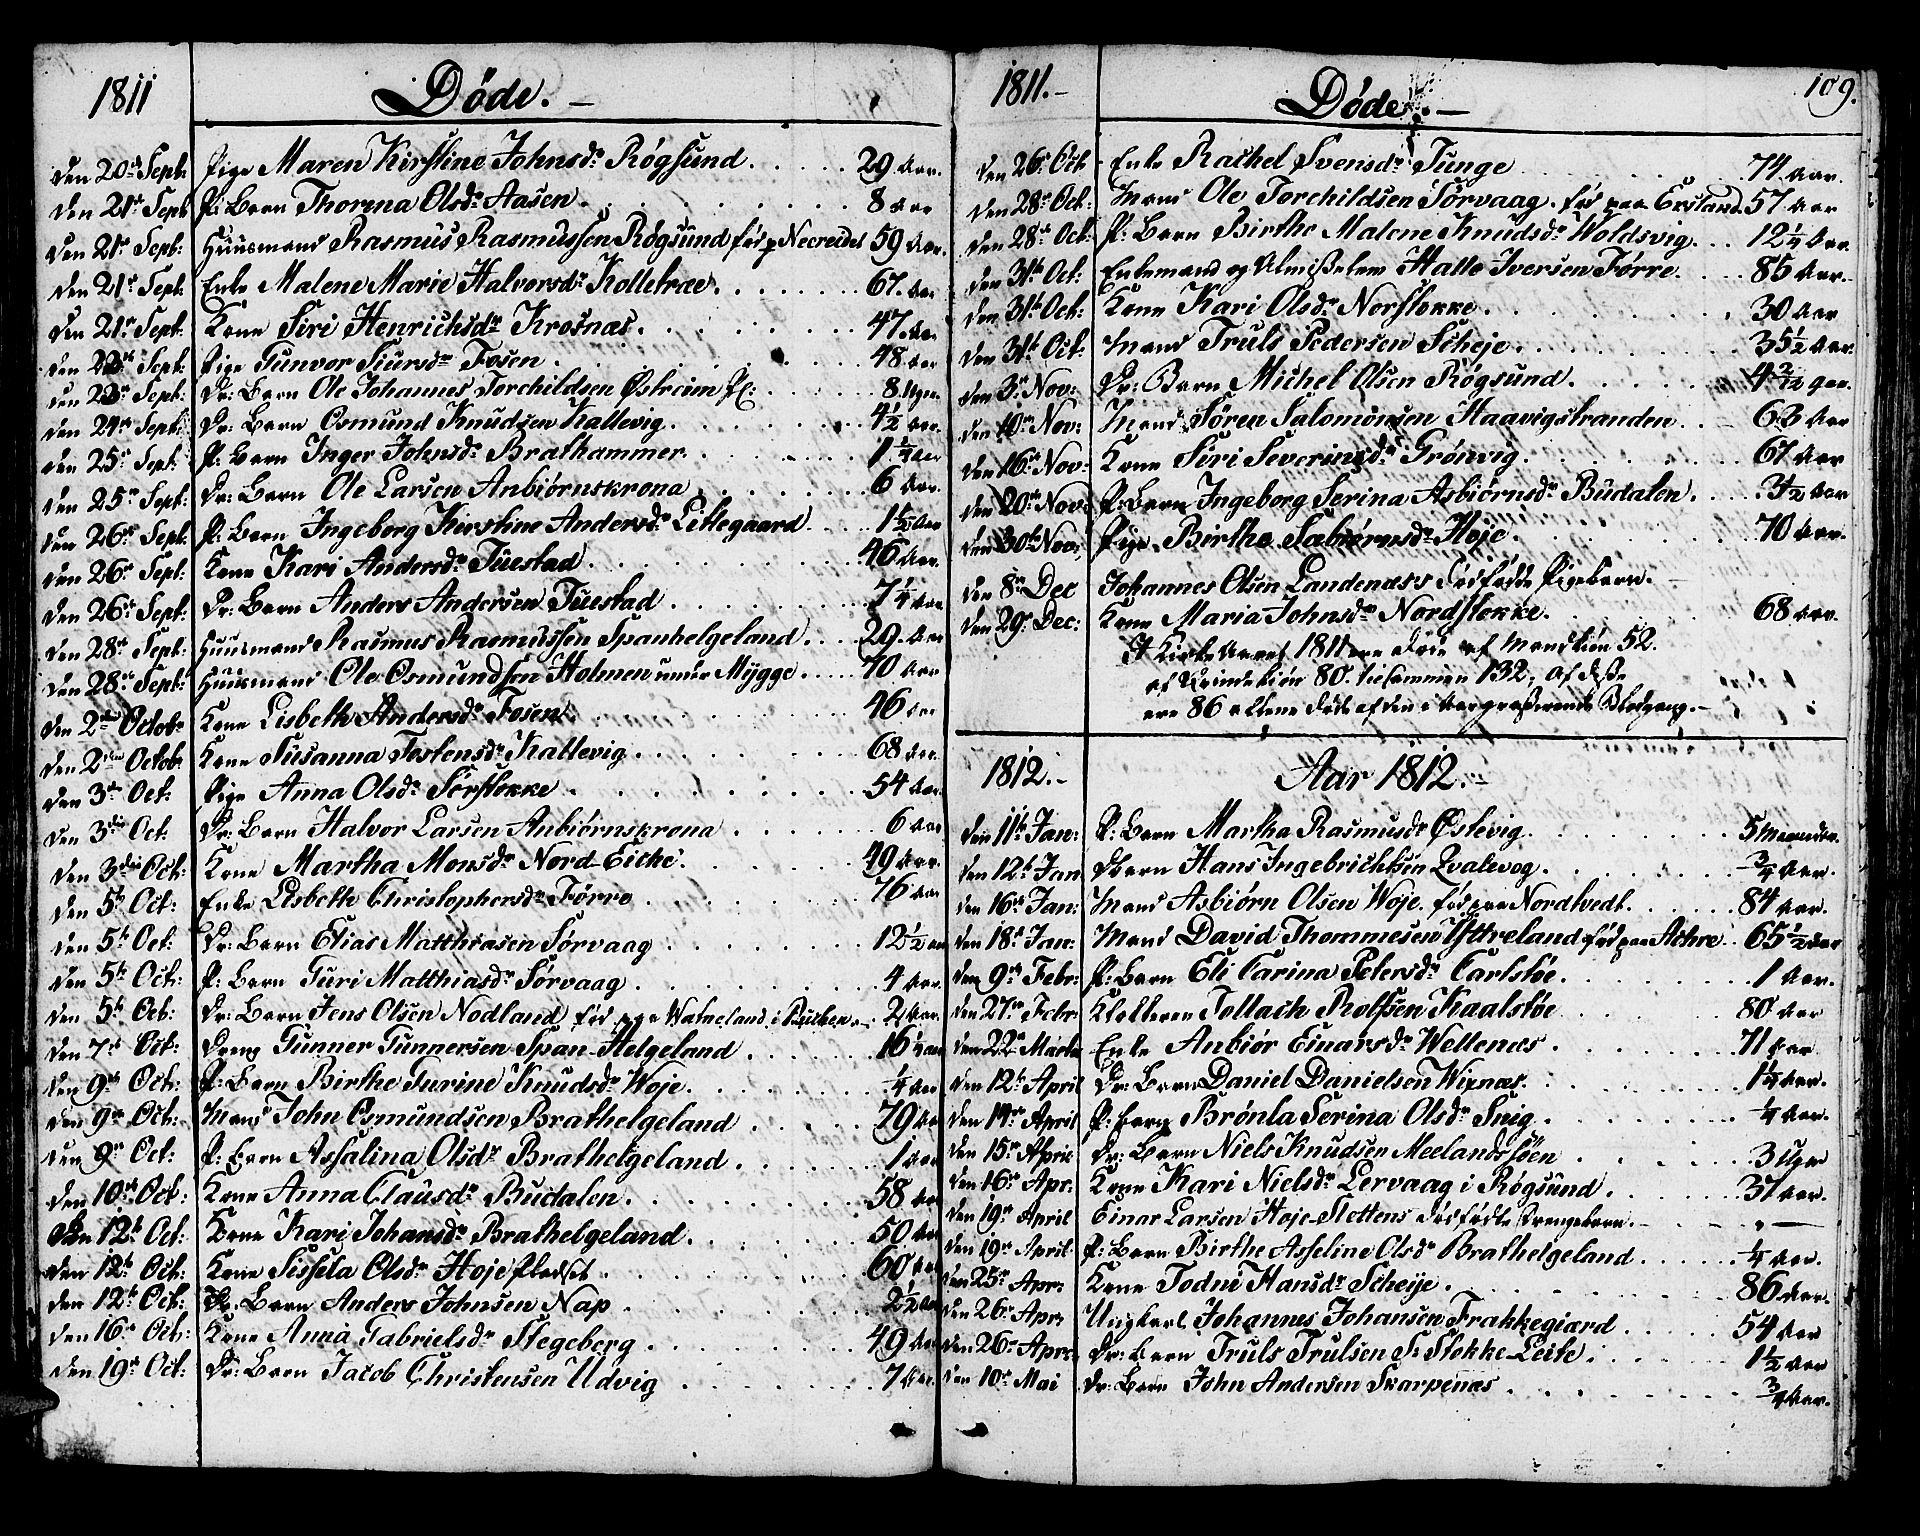 1811
Døde. –
den 20de Sept: Pige Maren Kirstine Johnsdr Røgsund. 29 Aar.
den 21de Sept: P: Barn Thorena Olsdr Aasen. 8 Aar
den 21de Sept: Huusmand Rasmus Rasmussen Røgsund fød p 59 Aar.
den 21de Sept: Enke Malene Marie Halvorsdr Kolletræe. 67. Aar
den 21de Sept: Kone Siri Henrichsdr Krosnæs. 47. Aar
den Sept: Pige Gunvor Siursdr Fosen. 48 Aar
den Sept: Dr: Barn Ole Johannes Torchildsen Østreim Pl: 8 Uger.
den 24de Sept: Dr: Barn Osmund Knudsen Kallevig. 4½ Aar.
den 25de Sept: P: Barn Inger Johnsdr Brathammer. 1¼ Aar
den 25de Sept: Dr: Barn Ole Larsen Anbiørnskrona 6 Aar.
den 26de Sept: P: Barn Ingeborg Kirstine Andersdr Litlegaard 1½ Aar
den 26de Sept: Kone Kari Andersdr Tuestad. 46 Aar.
den 26de Sept: Dr: Barn Anders Andersen Tuestad 7¼ Aar
den 28de Sept: Huusmand Rasmus Rasmussen Spanhelgeland. 29. Aar
den 28de Sept: Huusmand Ole Osmundsen Holmen under Mygge. 70 Aar
den 2den Octobr Kone Lisbeth Andersdr Fosen. 46 Aar
den 2den Octobr Kone Susanna Tostensdr Kallevig 68 Aar.
den 3die Oct: Pige Anna Olsdr Sørstokke. 54 Aar.
den 3die Oct: Dr: Barn Halvor Larsen Anbiørnskrona 6 Aar
den 3die Oct: Kone Martha Monsdr Nord-Eicke. 49 Aar.
den 5te Oct: Enke Lisbeth Christophersdr Førre 76 Aar
den 5te Oct: Dr: Barn Elias Matthiasen Sørvaag 12½ Aar
den 5te Oct: P: Barn Guri Matthiasdr Sørvaag 4 Aar.
den 5te Oct: Dr: Barn Jens Olsen Nodland fød paa Watneland i 2 Aar.
den 7de Oct: Dreng Gunner Gunnersen Span-Helgeland. 16½ Aar
den 9de Oct: P: Barn Birthe Turine Knudsdr Woje. ¼ Aar
den 9de Oct: Mand John Osmundsen Brathelgeland 79 Aar
den 9de Oct: P: Barn Assalina Olsdr Brathelgeland. 1 Aar
den 10de Oct: Kone Anna Clausdr Budalen 58 Aar
den 12te Oct: Kone Kari Johansdr Brathelgeland. 50 Aar
den 12te Oct: Kone Sissela Olsdr Høje Pladset. 60 Aar
den 12te Oct: Dr: Barn Anders Johnsen Nap 2½ Aar
den 16de Oct: Kone Anna Gabrielsdr Stegeberg 49 Aar
den 19de Oct: Dr: Barn Jacob Christensen Udvig 7 Aar.
109.
1811. –
Døde. –
den 26de Oct Enke Rachel Svensdr Tunge 74 Aar.
den 28de Oct: Mand Ole Torchildsen Sørvaag. fød paa Ersland. 57 Aar
den 28de Oct: P: Barn Birthe Malene Knudsdr Woldsvig. 12¼ Aar.
den 31te Oct: Enkemand og Almisselem Halle Iversen Førre. 85 Aar.
den 31te Oct: Kone Kari Olsdr Norstokke. 30 Aar
den 31te Oct: Mand Truls Pedersen Scheje. 35½ Aar.
den 3de Nov: Dr: Barn Michel Olsen Røgsund.
den 10de Nov: Mand Søren Salomonsen Haavigstranden 63 Aar
den 16de Nov: Kone Siri Severinsdr Grønvig. 67 Aar
den 20de Nov: P: Barn Ingeborg Serina Asbiørnsdr Budalen. 3½ Aar
den 30te Nov: Pige Birthe Sæbiørnsdr Høje. 70 Aar.
den 8de Dec Johannes Olsen Landenæss Dødfødde Pigebarn. –
den 29de Dec: Kone Maria Johnsdr Nordstokke. 68 Aar.
I Kirke Aaret 1811 ere døde af Mandkiøn 52.
af Qvindekiøn 80. tilsammen 132, af disse
ere 86 allene døde af den i Aar grasserende Blodgang. –
1812. –
Aar 1812. –
den 11te Jan: P: Barn Martha Rasmusdr Østevig. 5 Maaneder.
den 12te Jan DBarn Hans Ingebrichtsen Qvalevog. ¾ Aar.
den 16de Jan: Mand Asbiørn Olsen Woje. fød paa Nordtvedt. 84 Aar.
den 18de Jan: Mand David Thommesen Yttreland fød paa Achre. 65½ Aar
den 9de Febr: P: Barn Eli Carina Petersdr Carlstøe. 1 Aar.
den 27de Febr: Klokkeren Tollach Rolfsen Kaalstøe 80 Aar
den 22de Martii Enke Anbiør Einarsdr Wellenæs 71 Aar
den 12te April Dr: Barn Daniel Danielsen Wixnæs. 1¼ Aar.
den 14de April P: Barn Brønla Serina Olsdr Snig. ¼ Aar.
den 15de April Dr: Barn Niels Knudsen Meelandssöen 3 Uger
den 16de Apr: Kone Kari Nielsdr Lervaag i Røgsund. 37 Aar.
den 19de April Einar Larsen Høje-Slottens dødfødte Drengebarn. – „ –
den 19de April P: Barn Birthe Asseline Olsdr Brathelgeland. ¼ Aar.
den 25de Apr: Kone Todni Hansdr Scheije. 86 Aar.
den 26de Apr: Ungkarl Johannes Johansen Frakkegiærd. 54 Aar
den 26de Apr: Dr: Barn Truls Trulsen S: Stokke-Leite. 1½ Aar
den 10de Mai Dr: Barn John Andersen Skarpenæs ¾ Aar.